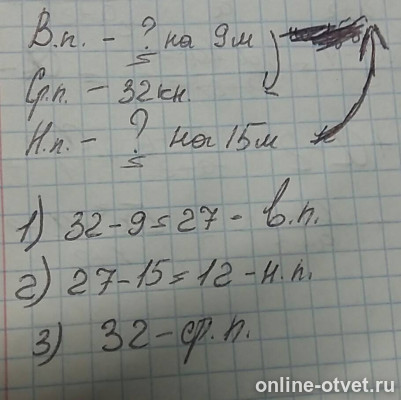 В.п. - ? на 9м
s
Ср.п. - 32кн.
Н.п. - ? на 15м
s
1) 32-9=27 - в.п.
2) 27-15=12 - н.п.
3) 32 - ср.п.
online-otvet.ru